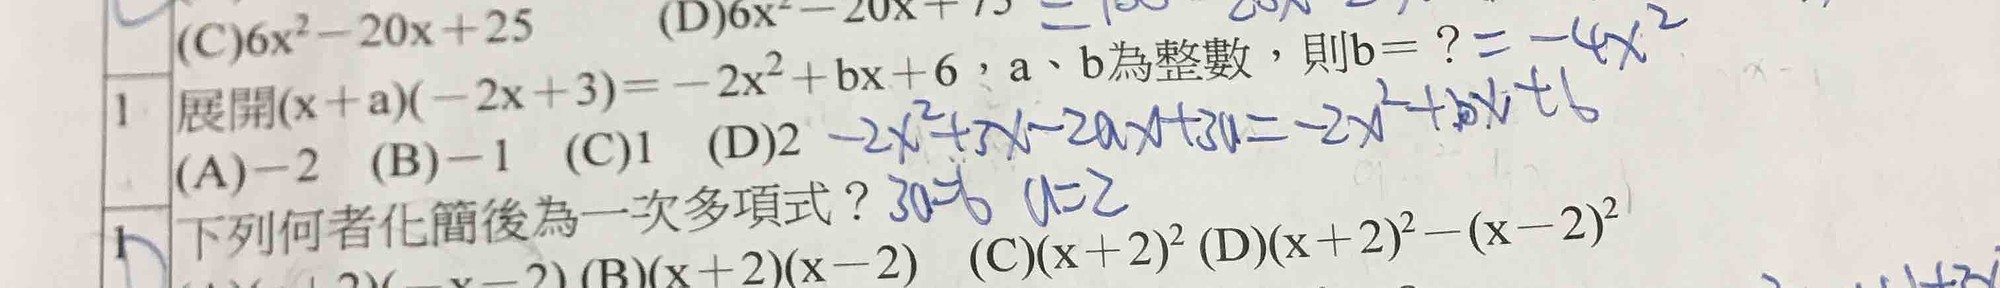 (C)6x²－20x＋25 (D)6x²－20x＋75
1 展開(x＋a)(－2x＋3)＝－2x²＋bx＋6，a、b為整數，則b＝？ = -4x²
(A)－2 (B)－1 (C)1 (D)2 -2x²+3x-2ax+3a=-2x²+bx+6
1 下列何者化簡後為一次多項式？ 3a=6 a=2
(B)(x＋2)(x－2) (C)(x＋2)² (D)(x＋2)²－(x－2)²